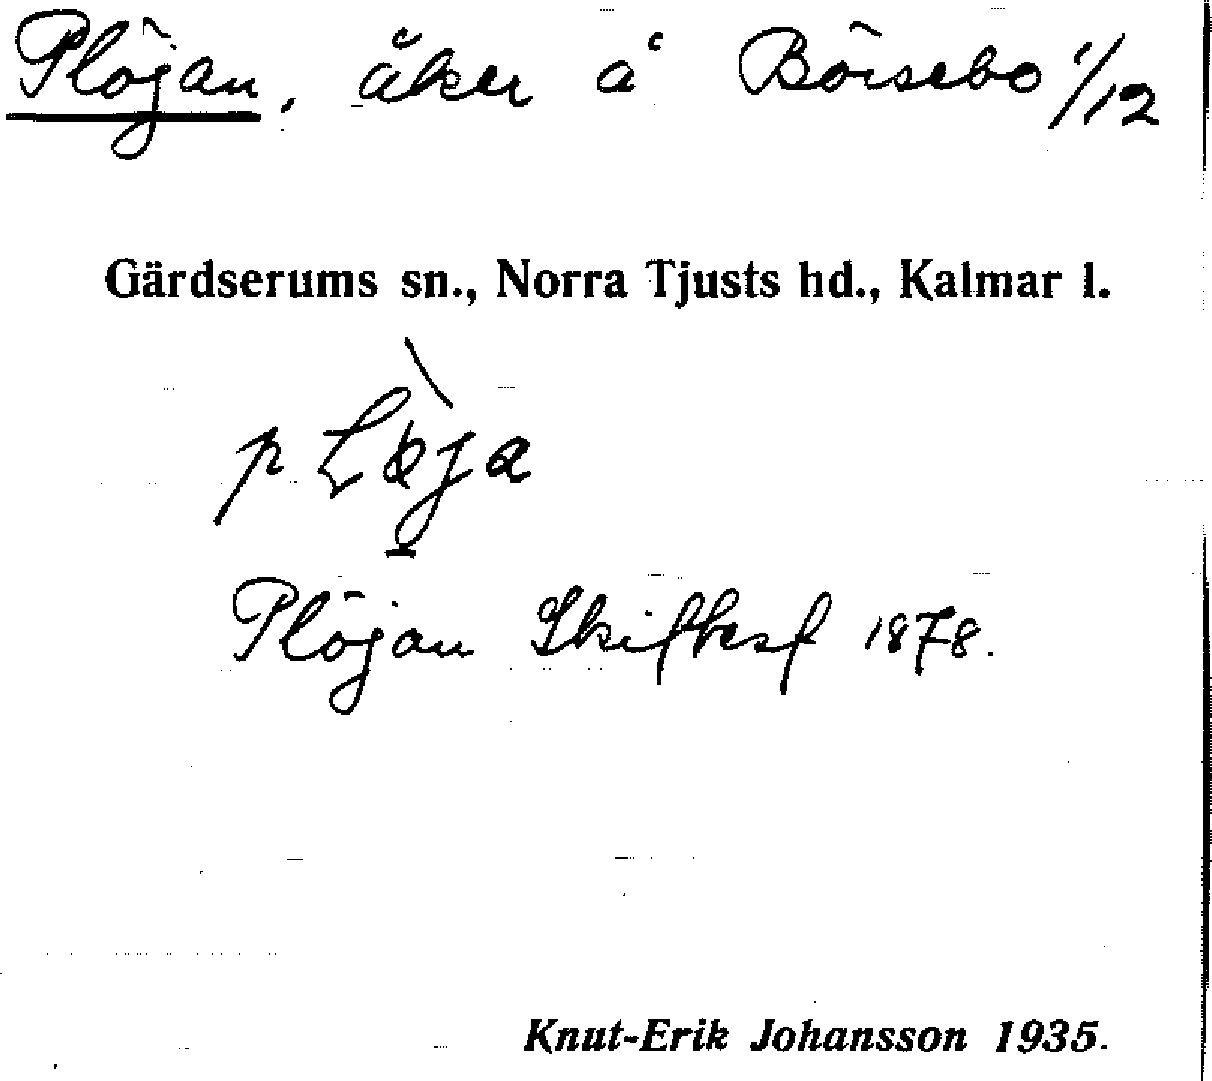 Plöjan, åker å Börsebo 1/12
Gärdserums sn., Norra Tjusts hd., Kalmar l.
pLøja
Plöjan Skifbesk 1878.
Knut-Erik Johansson 1935.